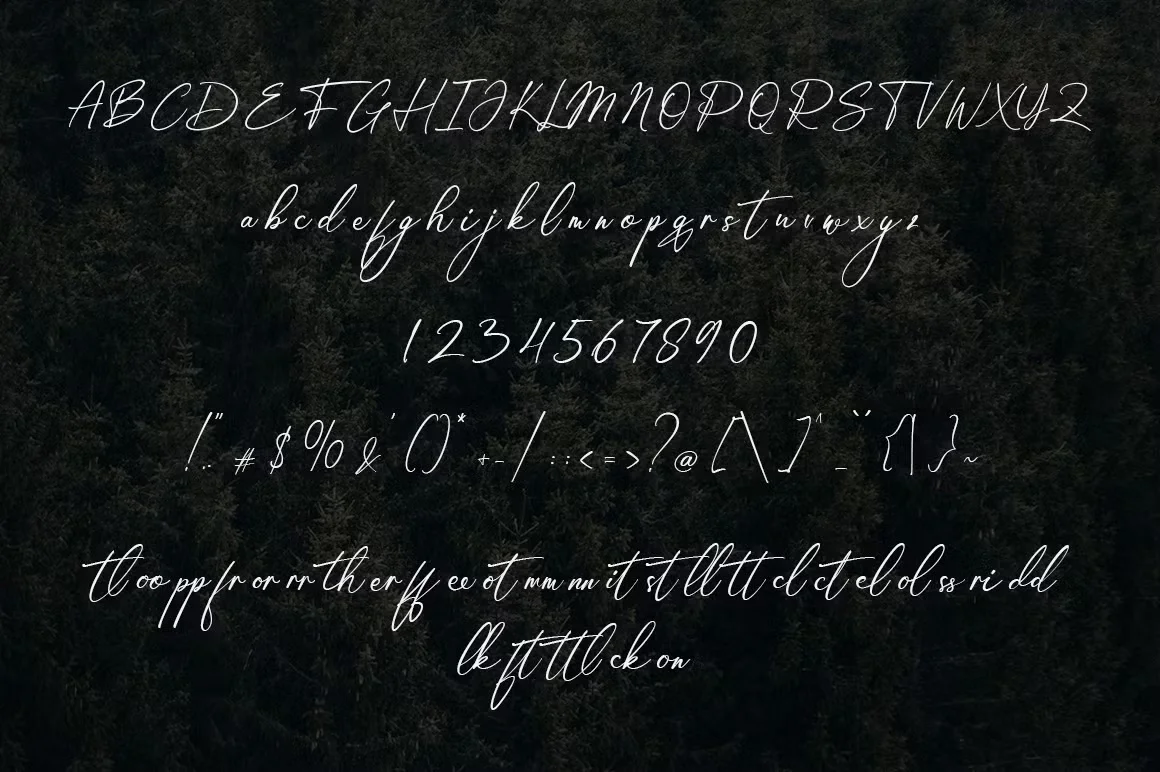 A B C D E F G H I J K L M N O P Q R S T V W X Y Z
a b c d e f g h i j k l m n o p q r s t u v w x y z
1 2 3 4 5 6 7 8 9 0
! " . , # $ % & ' ( ) * + - / : ; < = > ? @ [ \ ] ^ _ ` ` { | } ~
tl oo pp fr or rr th er ff ee ot mm nn it st ll tt cl ct el ol ss ri dd
lk ft ttl ck on